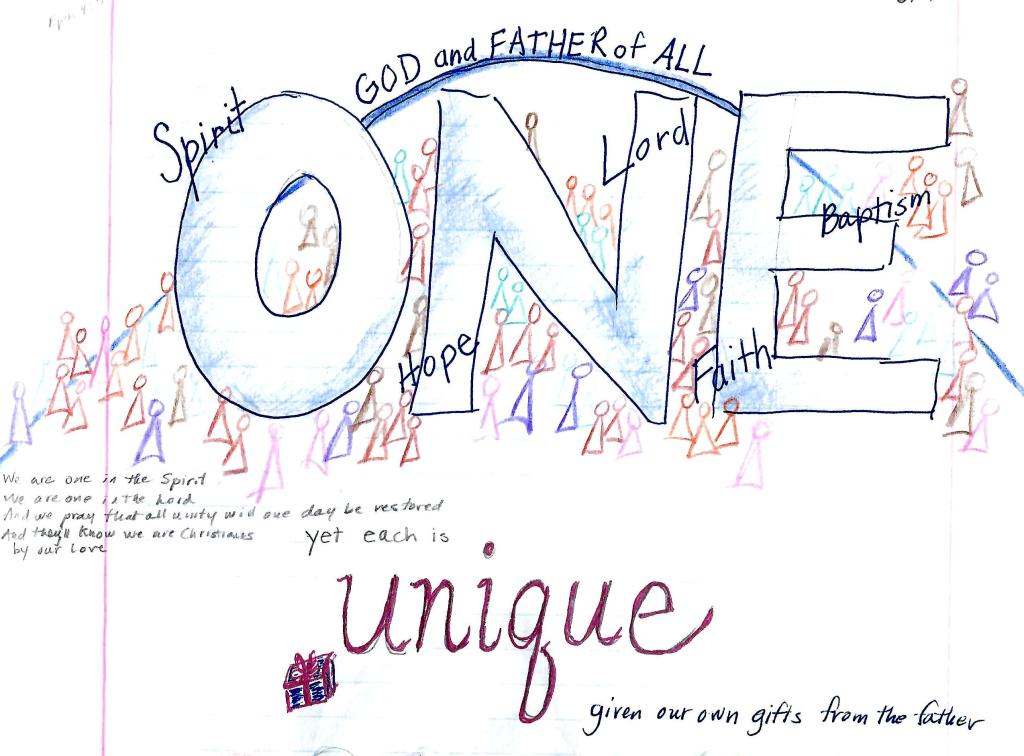 GOD and FATHER of ALL
Spirit
ONE
Lord
Baptism
Hope
Faith
We are one in the Spirit
We are one in the Lord
And we pray that all unity will one day be restored
And they'll know we are Christians
by our Love
yet each is
unique
given our own gifts from the father